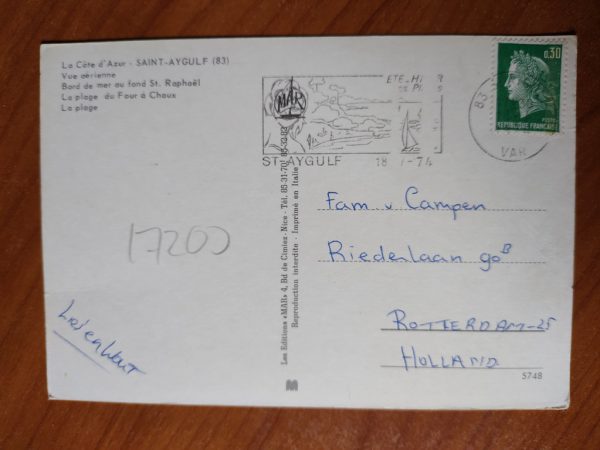 La Côte d'Azur - SAINT-AYGULF (83)
Vue aérienne
Bord de mer au fond St. Raphaël
La plage du Four à Chaux
La plage
17200
Les Editions «MAR» 4, Bd de Cimiez - Nice - Tél. 85-31-70 85-32-82
Reproduction interdite - Imprimé en Italie
MAR
ST-AYGULF
18 -74
83
VAR
0,30
POSTES
REPUBLIQUE FRANÇAISE
Fam v Campen
Riederlaan 90 B
ROTTERDAM-25
HOLLAND
5748
M